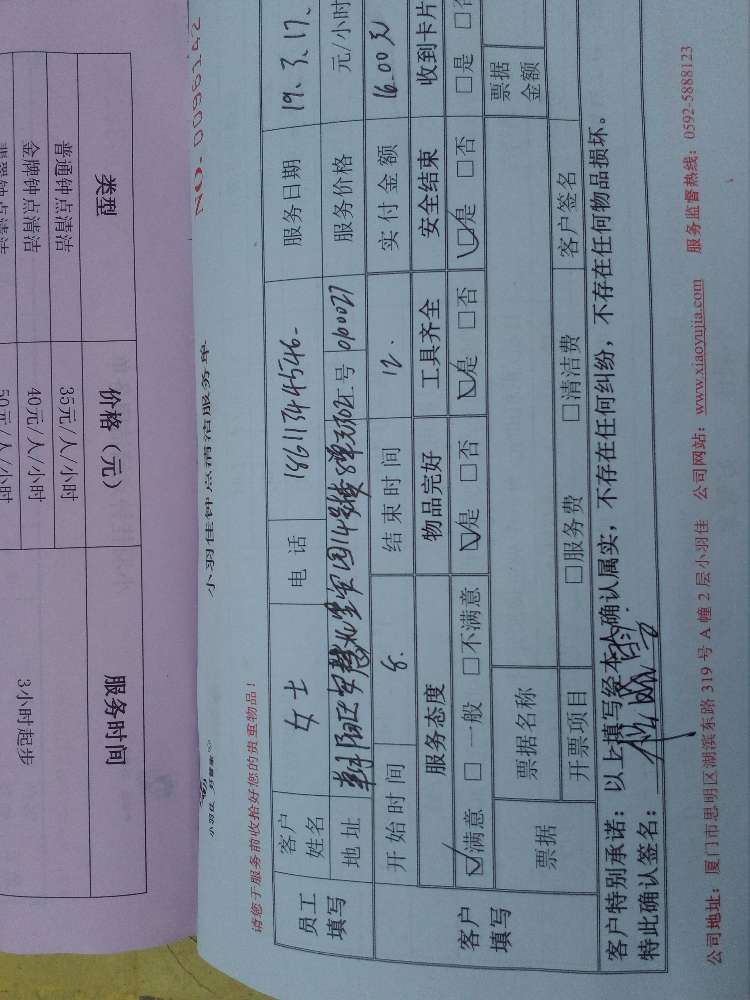 类型 价格（元） 服务时间
普通钟点清洁 35元/人/小时
金牌钟点清洁 40元/人/小时 3小时起步
50元/人/小时
NO. 0096142
小羽佳钟点清洁服务单
请您于服务前收拾好您的贵重物品！
员工填写 客户姓名 女士 电话 18611344546- 服务日期 19.3.17.
地址 朝阳区 工号 060027 服务价格 元/小时
开始时间 8. 结束时间 12. 实付金额 16.00元
客户填写 服务态度 物品完好 工具齐全 安全结束 收到卡片
满意 一般 不满意 是 否 是 否 是 否 是
票据 票据名称 票据金额
开票项目 服务费 清洁费 客户签名
客户特别承诺：以上填写经本人确认属实，不存在任何纠纷，不存在任何物品损坏。
特此确认签名：
公司地址：厦门市思明区湖滨东路 319 号 A 幢 2 层小羽佳 公司网站：www.xiaoyujia.com 服务监督热线：0592-5888123